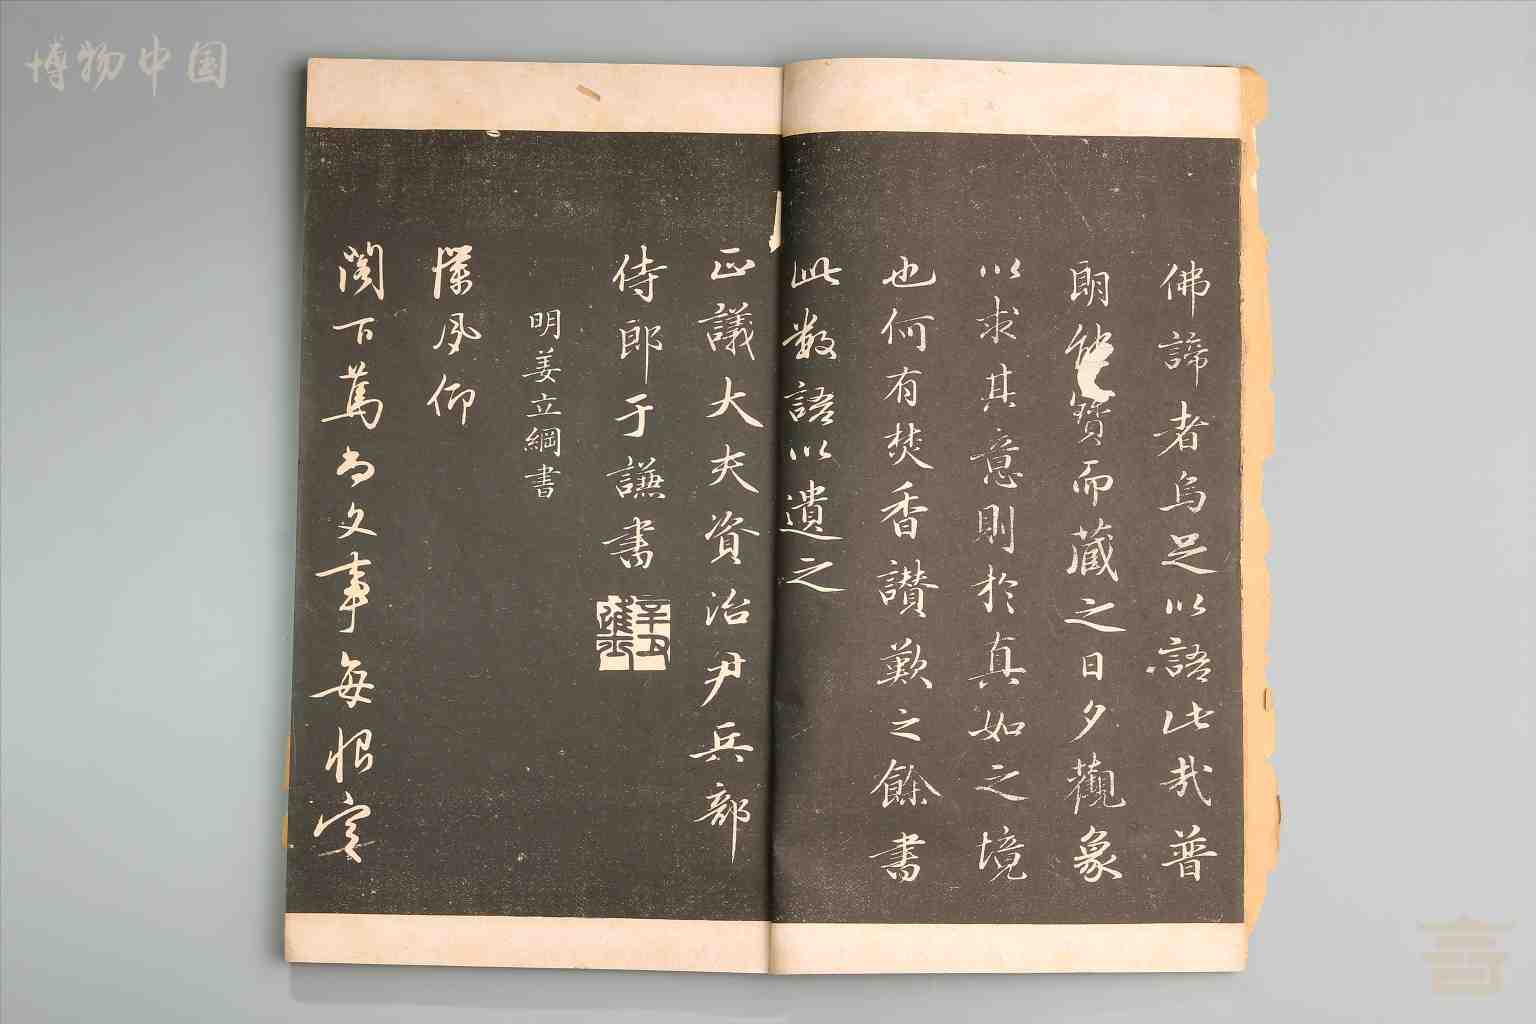 博物中国
佛諦者烏足以語此哉普
朗能寶而藏之日夕觀象
以求其意則於真如之境
也何有焚香讃歎之餘書
此数語以遺之
正議大夫資治尹兵部
侍郎于謙書
辛丑進士
明姜立綱書
懍夙仰
閣下篤尚文事每恨定